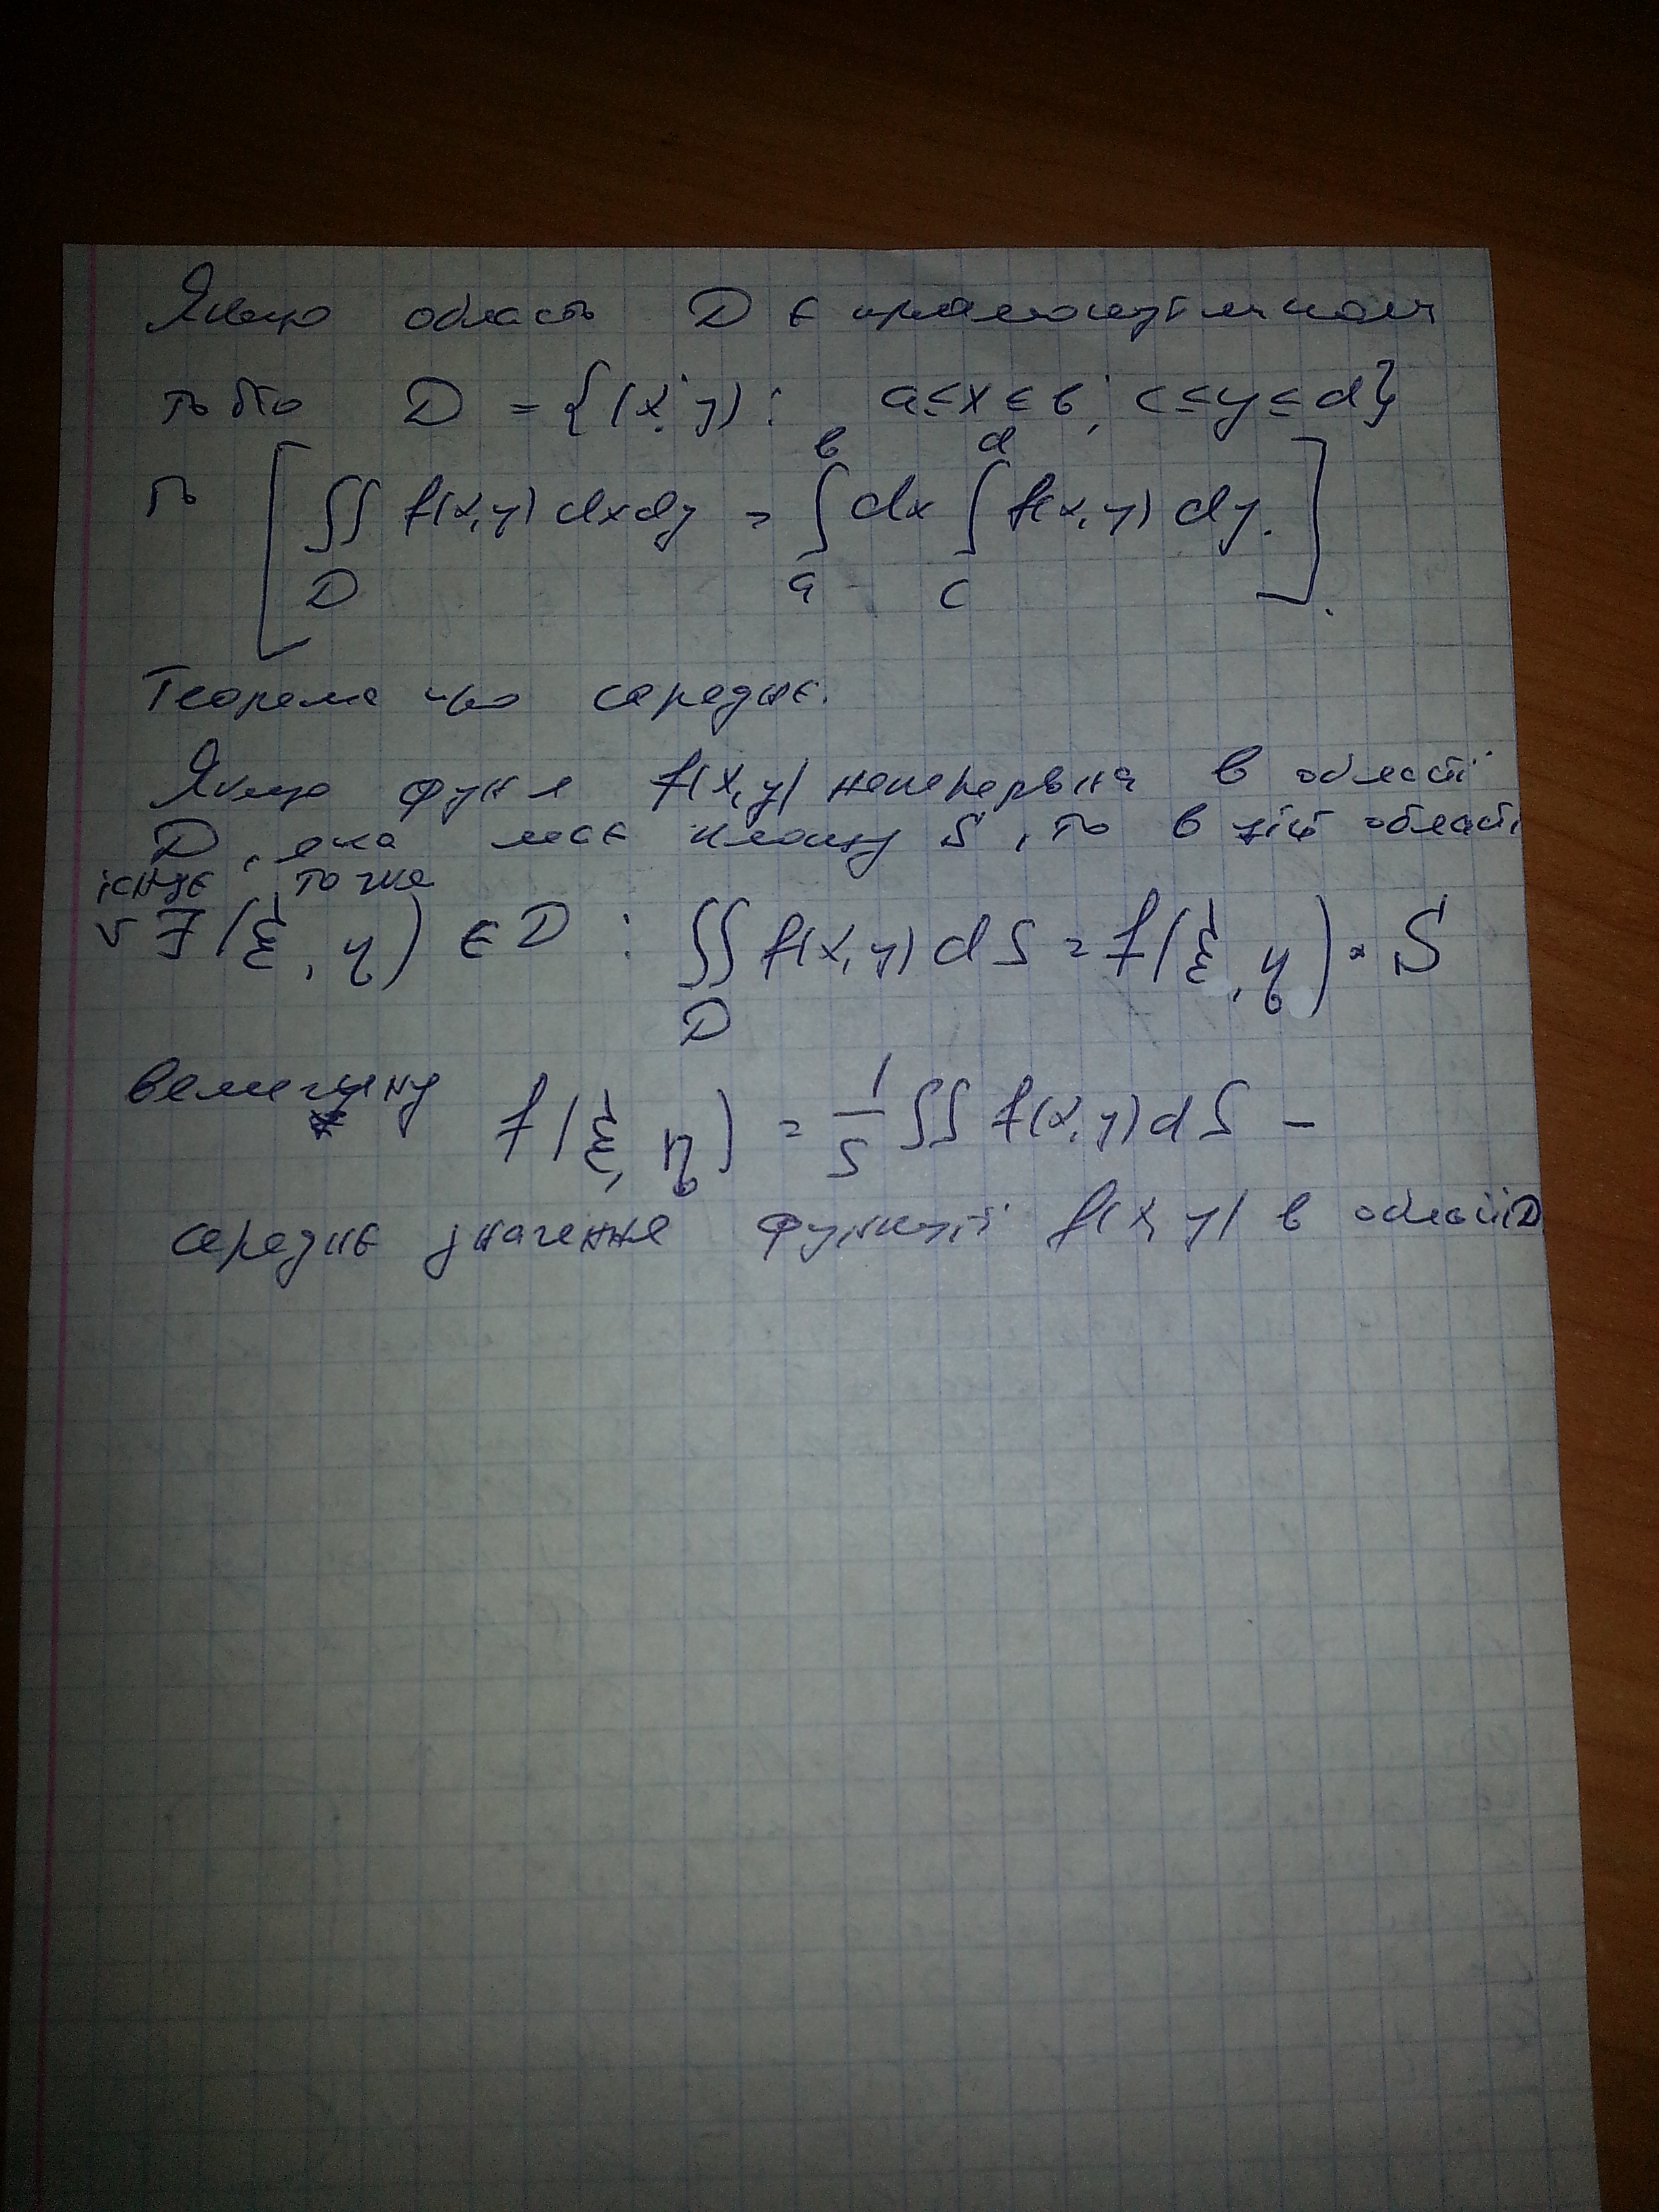 Якщо область D є прямокутником
тобто D = {(x; y): a ≤ x ≤ b; c ≤ y ≤ d}
то [∬_D f(x,y) dxdy = ∫_a^b dx ∫_c^d f(x,y) dy.].
Теорема про середнє.
Якщо функ я f(x,y) неперервна в області
D, яка має площу S, то в цій області
існує точка
∃(ξ, η) ∈ D : ∬_D f(x,y) dS = f(ξ, η) · S
величину f(ξ, η) = 1/S ∬ f(x,y) dS –
середнє значення функції f(x, y) в області D